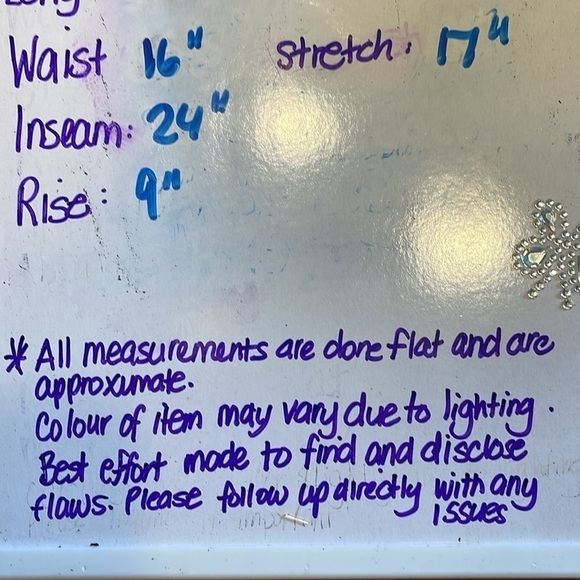 Waist 16" Stretch: 17"
Inseam: 24"
Rise: 9"
* All measurements are done flat and are
approximate.
Colour of item may vary due to lighting.
Best effort made to find and disclose
flaws. Please follow up directly with any
Issues